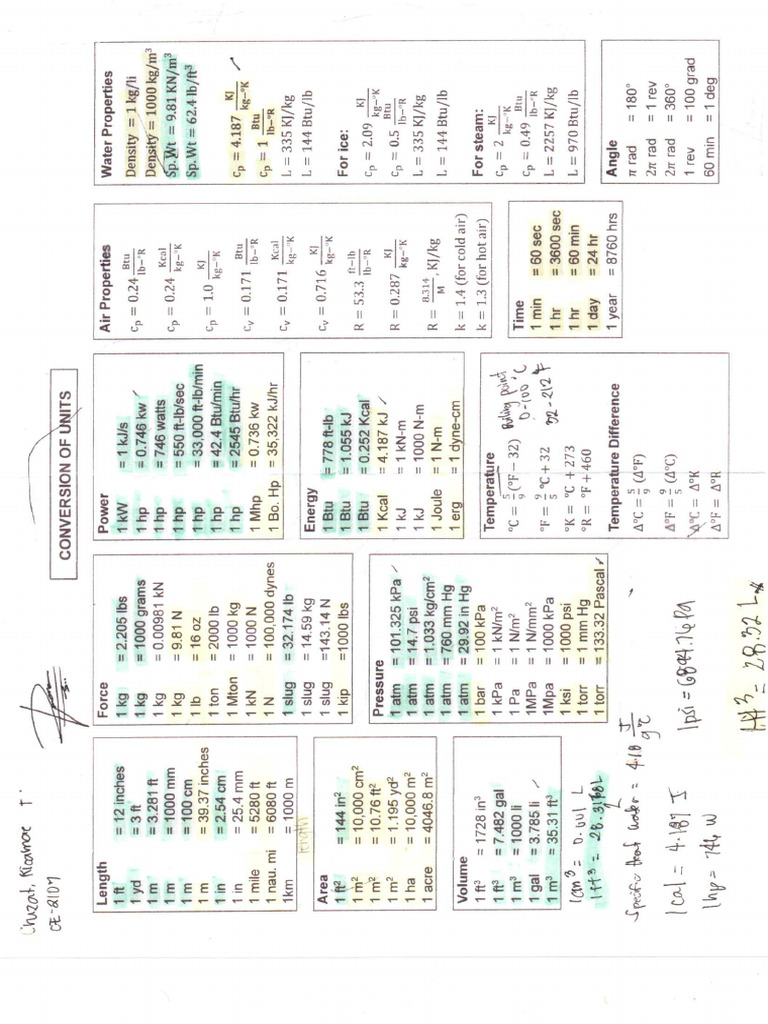 CE-2107
CONVERSION OF UNITS
Length
1 ft = 12 inches
1 yd = 3 ft
1 m = 3.281 ft
1 m = 1000 mm
1 m = 100 cm
1 m = 39.37 inches
1 in = 2.54 cm
1 in = 25.4 mm
1 mile = 5280 ft
1 nau. mi = 6080 ft
1km = 1000 m
length
Area
1 ft² = 144 in²
1 m² = 10,000 cm²
1 m² = 10.76 ft²
1 m² = 1.195 yd²
1 ha = 10,000 m²
1 acre = 4046.8 m²
Volume
1 ft³ = 1728 in³
1 ft³ = 7.482 gal
1 m³ = 1000 li
1 gal = 3.785 li
1 m³ = 35.31 ft³
1cm³ = 0.001 L
1ft³ = 28.3168L
Specific heat water = 4.18 J/g°C
1cal = 4.187 J
1hp = 746 W
Force
1 kg = 2.205 lbs
1 kg = 1000 grams
1 kg = 0.00981 kN
1 kg = 9.81 N
1 lb = 16 oz
1 ton = 2000 lb
1 Mton = 1000 kg
1 kN = 1000 N
1 N = 100,000 dynes
1 slug = 32.174 lb
1 slug = 14.59 kg
1 slug =143.14 N
1 kip =1000 lbs
Pressure
1 atm = 101.325 kPa
1 atm = 14.7 psi
1 atm = 1.033 kg/cm²
1 atm = 760 mm Hg
1 atm = 29.92 in Hg
1 bar = 100 kPa
1 kPa = 1 kN/m²
1 Pa = 1 N/m²
1MPa = 1 N/mm²
1Mpa = 1000 kPa
1 ksi = 1000 psi
1 torr = 1 mm Hg
1 torr = 133.32 Pascal
1psi = 6894.76 Pa
1ft³ = 28.32 L
Power
1 kW = 1 kJ/s
1 hp = 0.746 kw
1 hp = 746 watts
1 hp = 550 ft-lb/sec
1 hp = 33,000 ft-lb/min
1 hp = 42.4 Btu/min
1 hp = 2545 Btu/hr
1 Mhp = 0.736 kw
1 Bo. Hp = 35,322 kJ/hr
Energy
1 Btu = 778 ft-lb
1 Btu = 1.055 kJ
1 Btu = 0.252 Kcal
1 Kcal = 4.187 kJ
1 kJ = 1 kN-m
1 kJ = 1000 N-m
1 Joule = 1 N-m
1 erg = 1 dyne-cm
Temperature
°C = 5/9 (°F − 32)
°F = 9/5 °C + 32
°K = °C + 273
°R = °F + 460
Boiling point
0-100 °C
32-212 °F
Temperature Difference
Δ°C = 5/9 (Δ°F)
Δ°F = 9/5 (Δ°C)
Δ°C = Δ°K
Δ°F = Δ°R
Air Properties
cp = 0.24 Btu/lb−°R
cp = 0.24 Kcal/kg−°K
cp = 1.0 KJ/kg−°K
cv = 0.171 Btu/lb−°R
cv = 0.171 Kcal/kg−°K
cv = 0.716 KJ/kg−°K
R = 53.3 ft−lb/lb−°R
R = 0.287 KJ/kg−°K
R = 8.314/M, KJ/kg
k = 1.4 (for cold air)
k = 1.3 (for hot air)
Time
1 min = 60 sec
1 hr = 3600 sec
1 hr = 60 min
1 day = 24 hr
1 year = 8760 hrs
Water Properties
Density = 1 kg/li
Density = 1000 kg/m³
Sp. Wt = 9.81 KN/m³
Sp. Wt = 62.4 lb/ft³
cp = 4.187 KJ/kg−°K
cp = 1 Btu/lb−°R
L = 335 KJ/kg
L = 144 Btu/lb
For ice:
cp = 2.09 KJ/kg−°K
cp = 0.5 Btu/lb−°R
L = 335 KJ/kg
L = 144 Btu/lb
For steam:
cp = 2 KJ/kg−°K
cp = 0.49 Btu/lb−°R
L = 2257 KJ/kg
L = 970 Btu/lb
Angle
π rad = 180°
2π rad = 1 rev
2π rad = 360°
1 rev = 100 grad
60 min = 1 deg